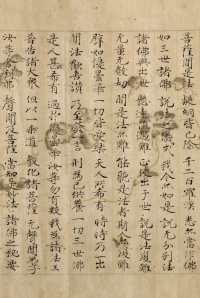 菩薩聞是法 疑網皆已除 千二百羅漢 悉亦當作佛
如三世諸佛 說法之儀式 我今亦如是 說無分別法
諸佛興出世 懸遠值遇難 正使出于世 說是法復難
無量無數劫 聞是法亦難 能聽是法者 斯人亦復難
譬如優曇華 一切皆愛樂 天人所希有 時時乃一出
聞法歡喜讚 乃至發一言 則為已供養 一切三世佛
是人甚希有 過於優曇華 汝等勿有疑 我為諸法王
普告諸大眾 但以一乘道 教化諸菩薩 無聲聞弟子
汝等舍利弗 聲聞及菩薩 當知是妙法 諸佛之秘要